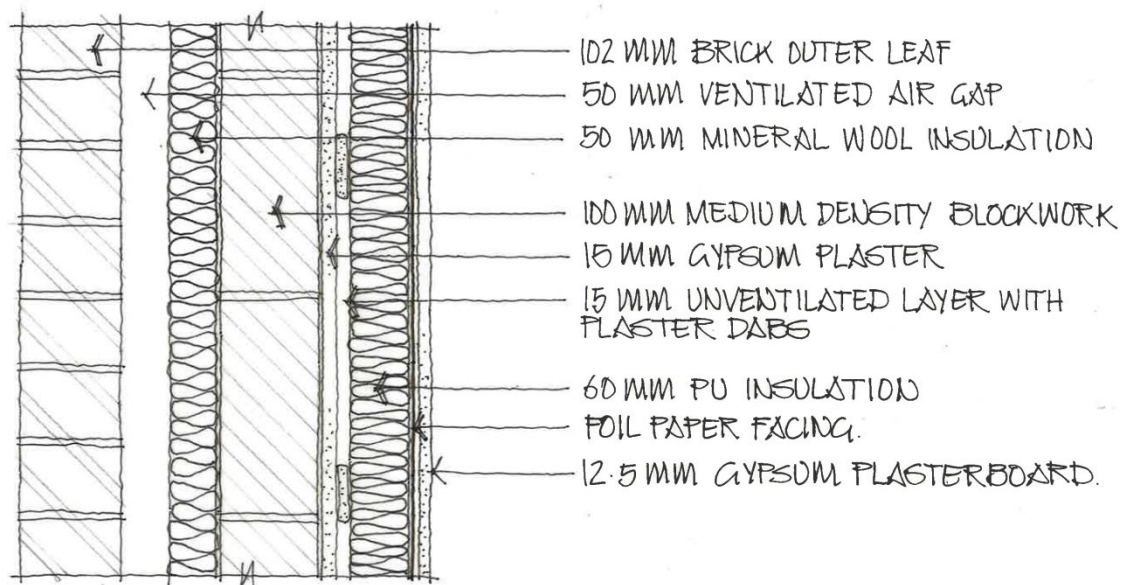 102 MM BRICK OUTER LEAF
50 MM VENTILATED AIR GAP
50 MM MINERAL WOOL INSULATION
100 MM MEDIUM DENSITY BLOCKWORK
15 MM GYPSUM PLASTER
15 MM UNVENTILATED LAYER WITH
PLASTER DABS
60 MM PU INSULATION
FOIL PAPER FACING.
12.5 MM GYPSUM PLASTERBOARD.